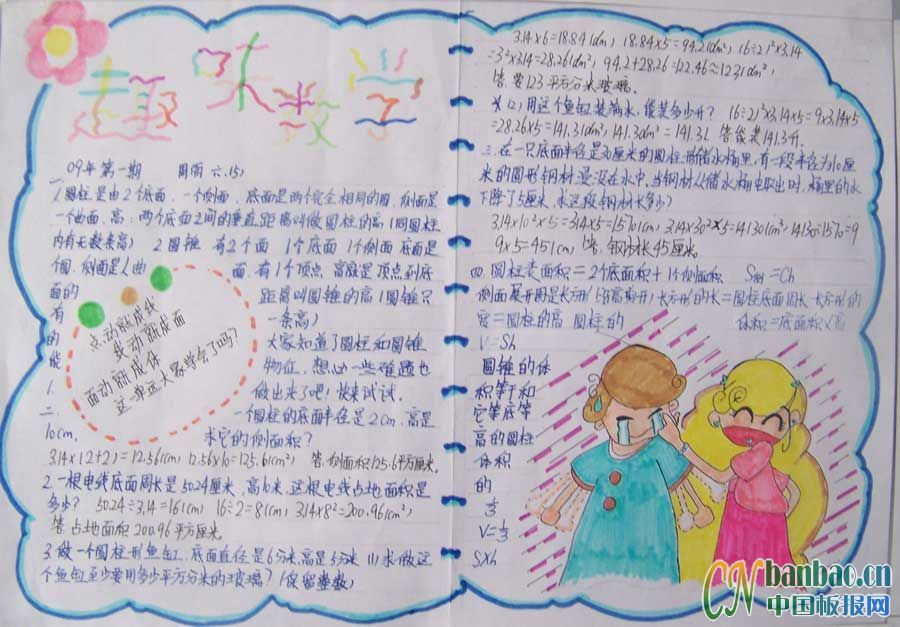 趣味数学
09年 第一期 周雨 六.(5)
一
1.圆柱是由2个底面,一个侧面,底面是两个完全相同的圆,侧面是
一曲面,高:两个底面之间的垂直距离叫做圆柱的高(同圆柱
内有无数条高) 2 圆锥 有2个面 1个底面 1个侧面 底面是
个圆,侧面是个曲面,有1个顶点,高就是顶点到底
面的距离叫圆锥的高(圆锥只
有一条高)
点动就成线
线动就成面
面动就成体
这些是大家学会了吗?
大家知道了圆柱和圆锥
的物征,想必一些难题也
能做出来了吧!快来试试.
二 1. 一个圆柱的底面半径是2cm,高是
10cm. 求它的侧面积?
3.14×(2+2)=12.56(cm) 12.56×10=125.6(cm²) 答:侧面积125.6平方厘米.
2.一根电线底面周长是50.24厘米,高6米.这根电线占地面积是
多少? 50.24÷3.14=16(cm) 16÷2=8(cm) 3.14×8²=200.96(cm²)
答:占地面积200.96平方厘米
3.做一个圆柱形鱼缸,底面直径是6分米,高是5分米 (1)求做这
个鱼缸至少要用多少平方分米的玻璃?(保留整数)
3.14×6=18.84(dm) 18.84×5=94.2(dm²) (6÷2)²×3.14
=3²×3.14=28.26(dm²) 94.2+28.26=122.46≈123(dm²)
答:要123平方分米玻璃.
(2)用这个鱼缸装满水,能装多少升? (6÷2)²×3.14×5=9×3.14×5
=28.26×5=141.3(dm³) 141.3dm³=141.3L 答:能装141.3升.
三.在一只底面半径是30厘米的圆柱形储水桶里,有一段半径为10厘
米的圆形钢材浸没在水中.当钢材从储水桶中取出时,桶里的水
下降了5厘米,求这段钢材长多少?
3.14×10²×5=314×5=1570(cm) 3.14×30²×5=14130(cm³) 14130÷1570=9
9×5=45(cm) 答:钢材长45厘米.
四.圆柱表面积=2个底面积+1个侧面积 S侧=Ch
侧面展开图是长方形(沿高剪开)长方形的长=圆柱底面周长 长方形的
宽=圆柱的高 圆柱的体积=底面积×高
V=Sh
圆锥的体
积等于和
它等底等
高的圆柱
体积
的
1/3
V=1/3
S×h
CN banbao.cn
中国板报网